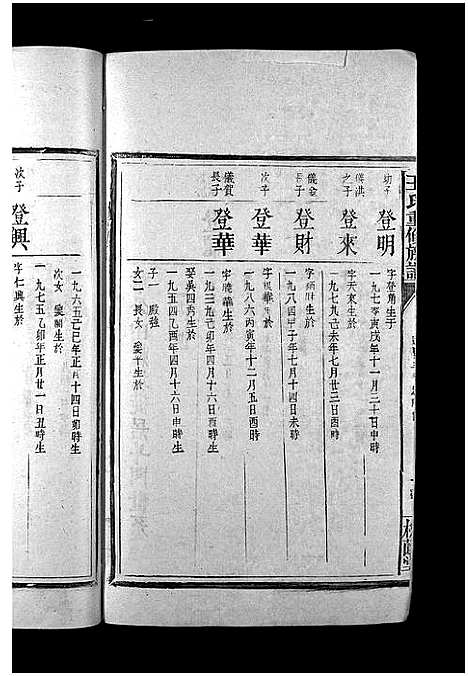 王氏重修族譜
幼子
登明
字登角生于
一九七〇庚戌年十一月三十日申時生
儀淇之子
登來
字天來生於
一九七九己未年七月廿三日酉時生
儀金長子
登財
生於
一九八四甲子年七月十四日酉時
次子
登華
生於
一九八六丙寅年十二月五日酉時
儀賀長子
登華
字 華生於
一九三九己卯年四月十六日酉時生
娶吳四秀生於
一九五四乙酉年四月十六日申時生
子一 殿強
女二 長女 愛平生於
一九六五乙巳年正月十四日卯時生
次女 愛 生於
一九七五乙卯年正月廿一日丑時生
次子
登興
字仁興生於